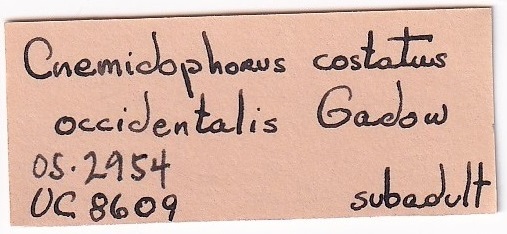 Cnemidophorus costatus
occidentalis Gadow
OS·2954
UC 8609 subadult